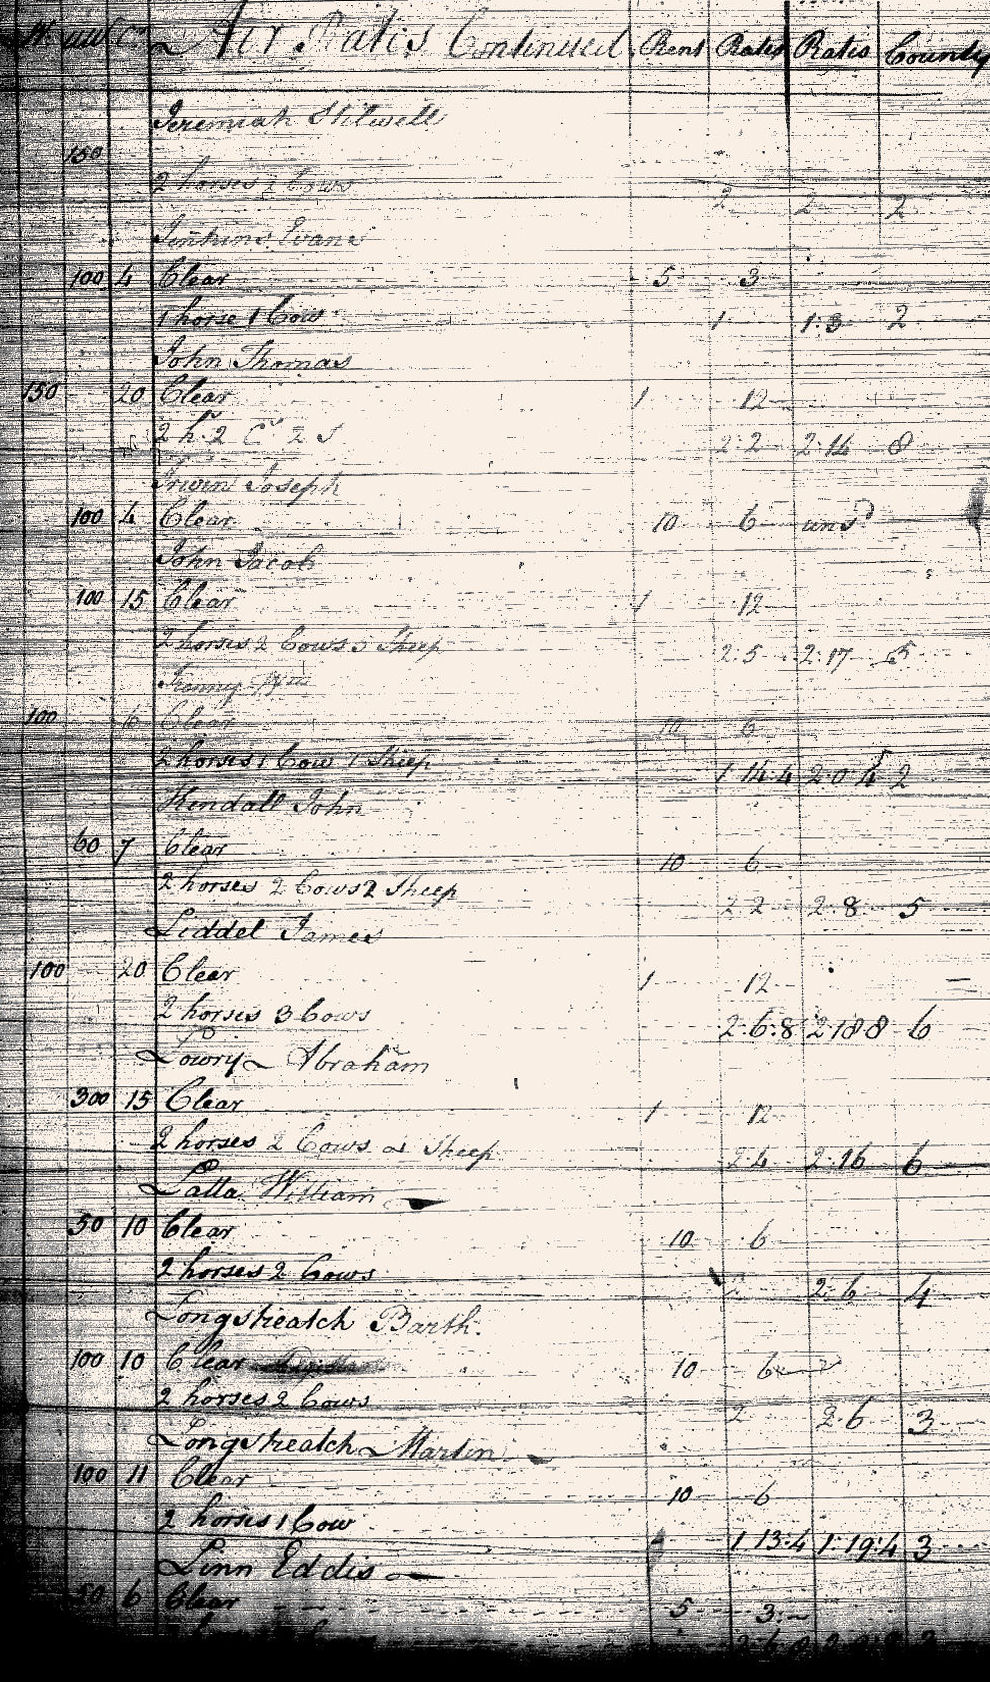 Air Rates Continued Rent Rates Rates County
Jeremiah Stilwell
150
2 horses 2 Cows
2 2 2
Jenkins Evans
100 4 Clear 5 3
1 horse 1 Cow 1 1:3 2
John Thomas
150 20 Clear 1 12
2 h. 2 C 2 S 2:2 2:14 8
Irwin Joseph
100 4 Clear 10 6
John Jacob
100 15 Clear 1 12
2 horses 2 Cows 3 Sheep 2:5 2:17 5
100 6 Clear 10 6
2 horses 1 Cow 1 Sheep 1 14:4 2:0 4 2
Kendall John
60 7 Clear 10 6
2 horses 2 Cows 2 Sheep 2 2 2 8 5
Liddel James
100 20 Clear 1 12
2 horses 3 Cows 2:6:8 2 18 8 6
Lowry Abraham
300 15 Clear 1 12
2 horses 2 Cows Sheep 2:4 2:16 6
Latta William
50 10 Clear 10 6
2 horses 2 Cows 2 2:6 4
Longstreatch Barth.
100 10 Clear 10 6
2 horses 2 Cows 2 2 6 3
Longstreatch Martin
100 11 Clear 10 6
2 horses 1 Cow 1 13:4 1:19:4 3
Linn Eddis
50 6 Clear 5 3